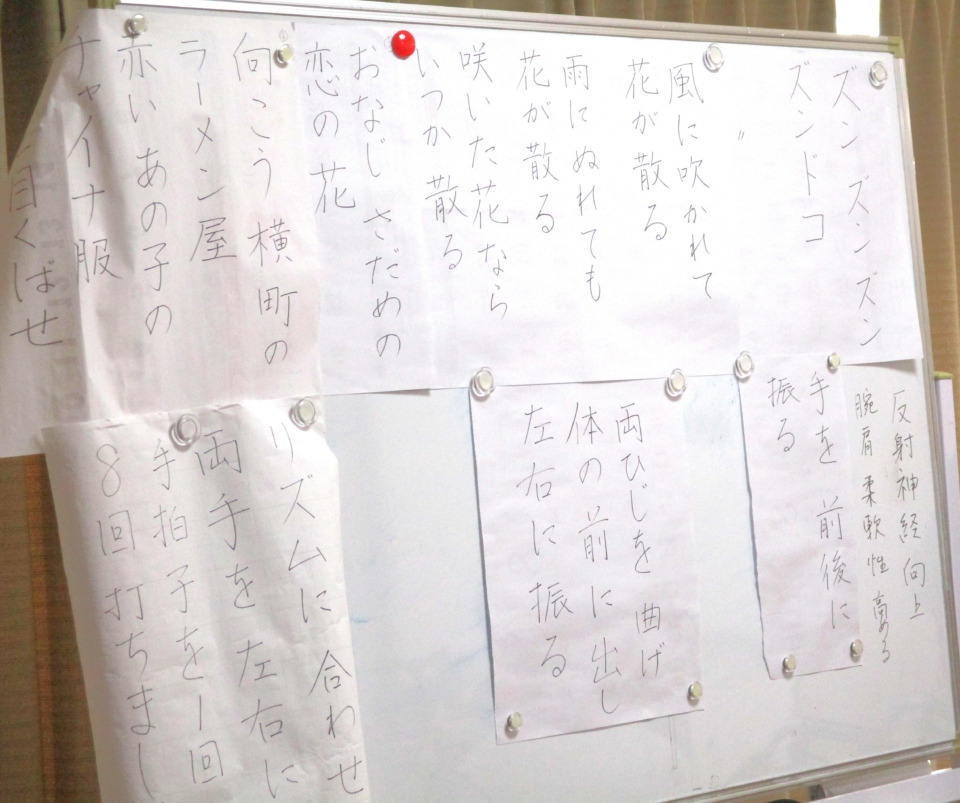 ズン ズンズンズン
ズンドコ
〃
風に吹かれて
花が散る
雨にぬれても
花が散る
咲いた花なら
いつか 散る
おなじ さだめの
恋の花
向こう 横町の
ラーメン屋
赤い あの子の
チャイナ服
目くばせ
反射神経 向上
腕肩 柔軟性 高める
手を 前後に
振る
両ひじを 曲げ
体の 前に 出し
左右に 振る
リズムに 合わせ
両手を 左右に
手拍子を 1回
8回 打ちまし